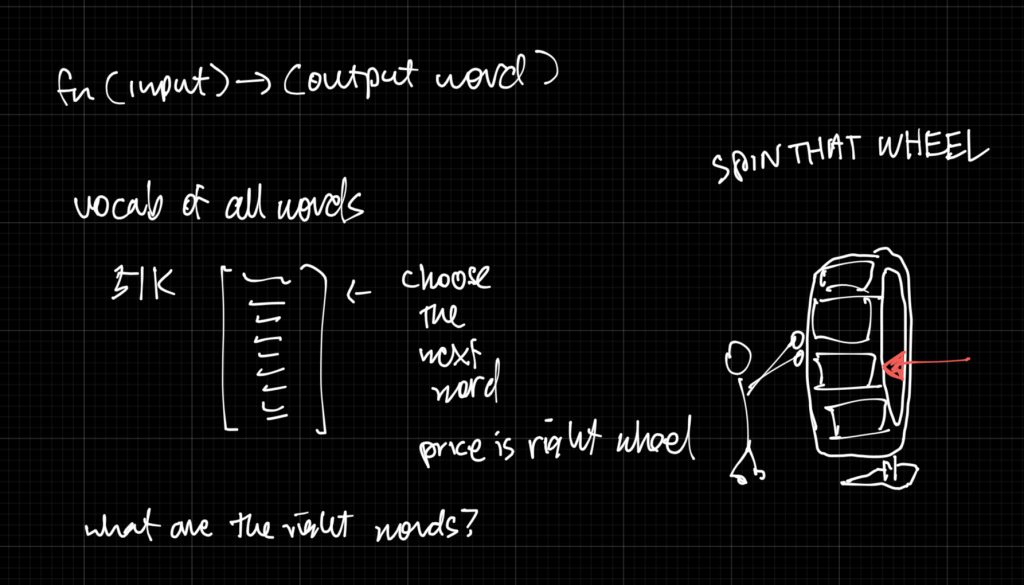 fn(input)→(output word)
SPIN THAT WHEEL
vocab of all words
51K
← choose
the
next
word
price is right wheel
what are the right words?